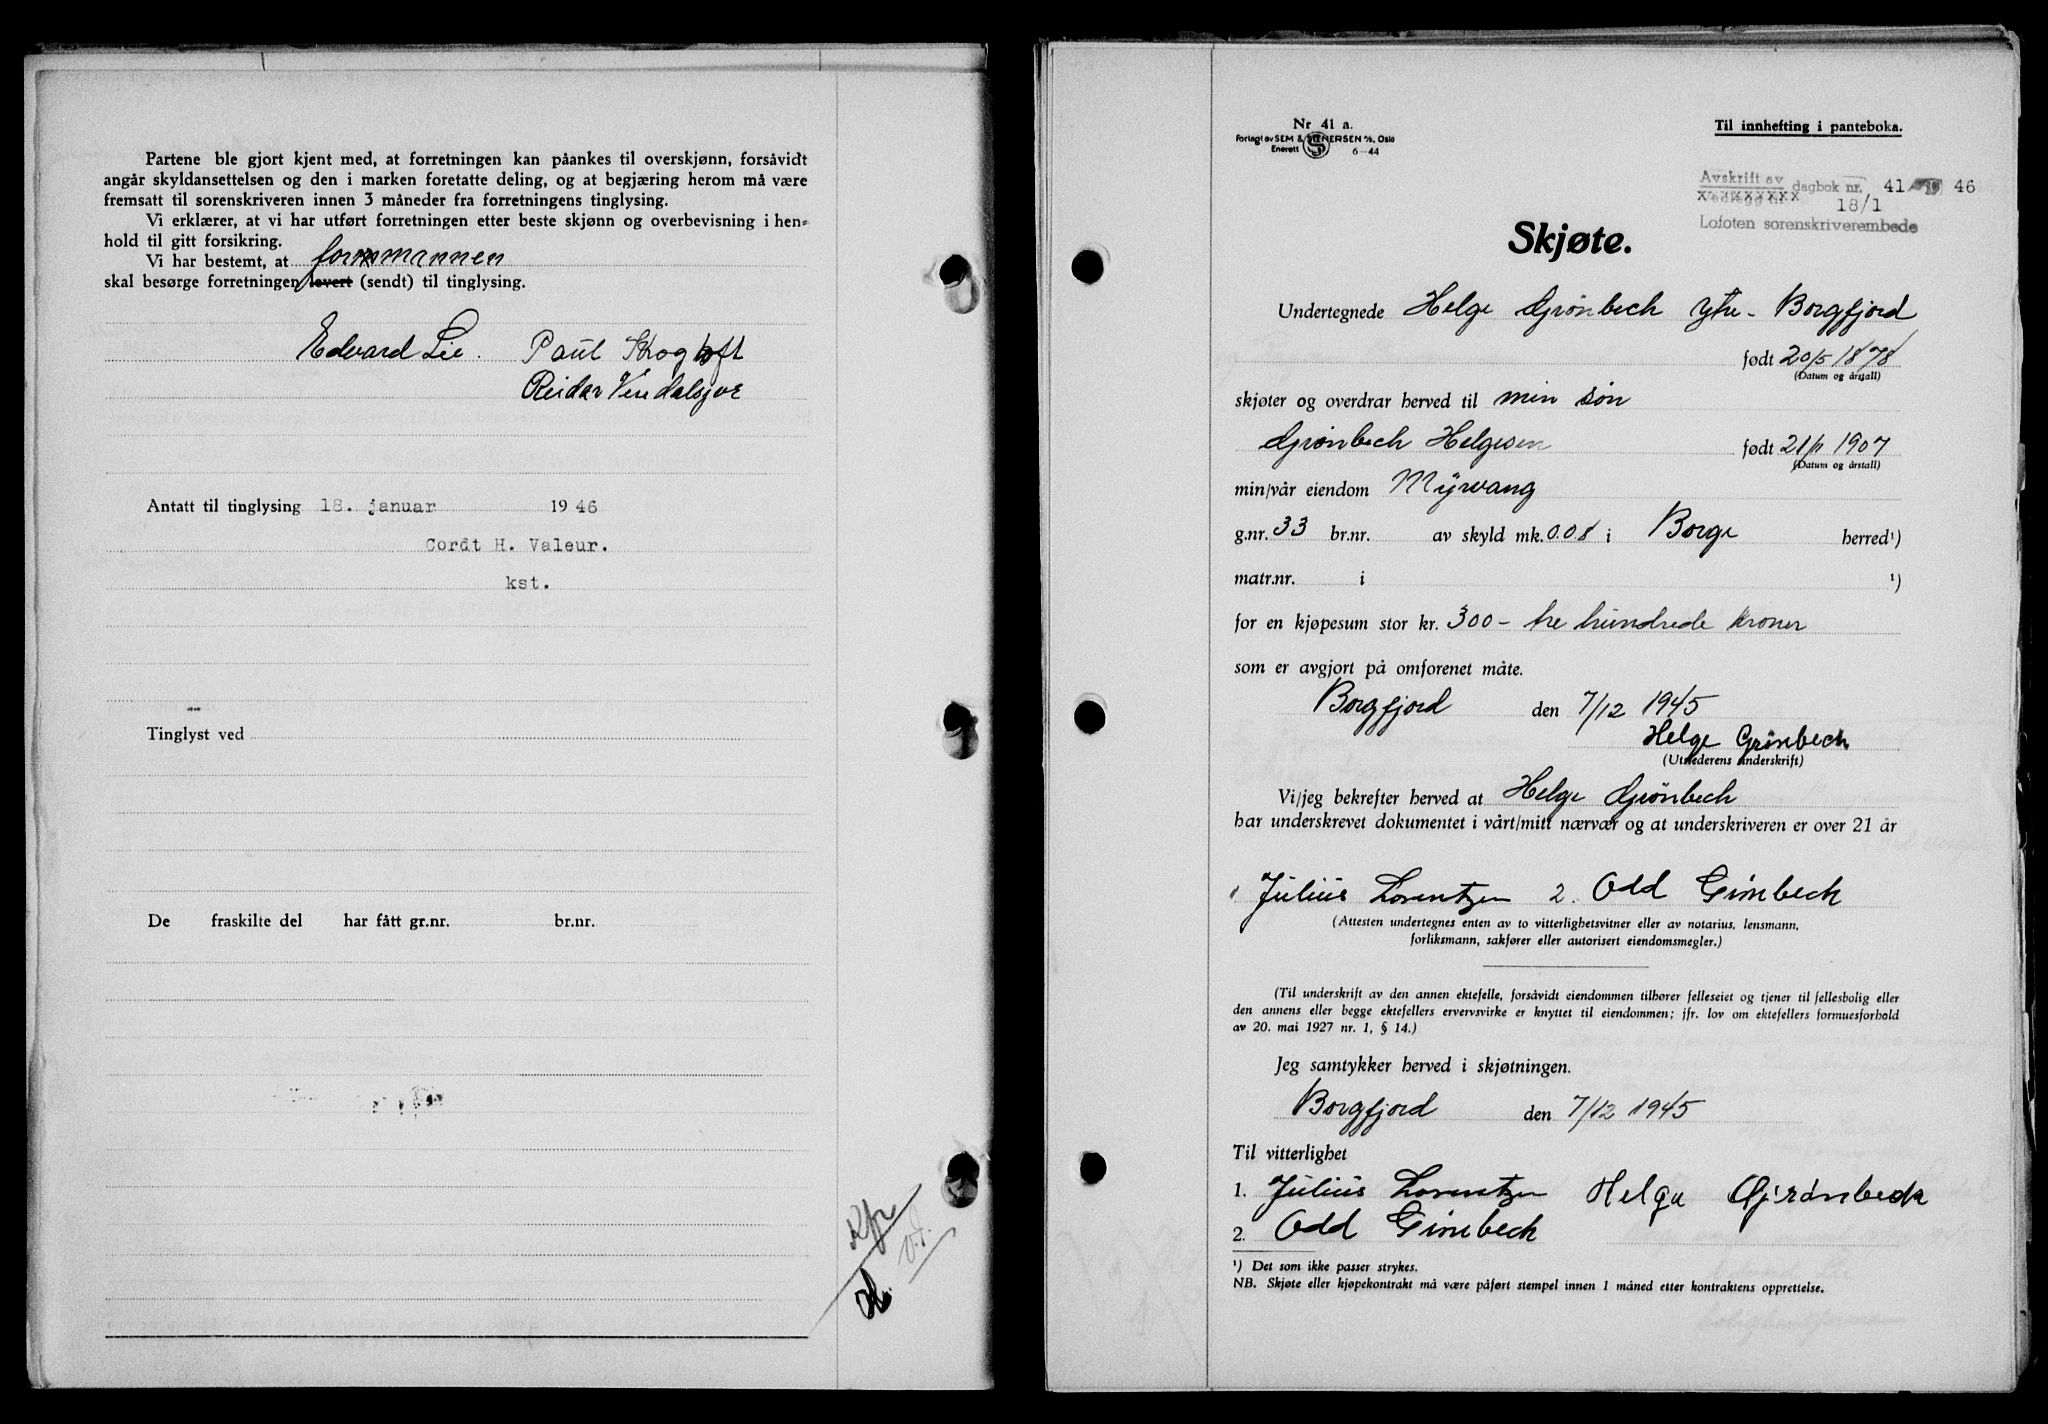 Partene ble gjort kjent med, at forretningen kan påankes til overskjønn, forsåvidt
angår skyldansettelsen og den i marken foretatte deling, og at begjæring herom må være
fremsatt til sorenskriveren innen 3 måneder fra forretningens tinglysing.
Vi erklærer, at vi har utført forretningen etter beste skjønn og overbevisning i hen-
hold til gitt forsikring.
Vi har bestemt, at formannen
skal besørge forretningen levert (sendt) til tinglysing.
Edvard Lie. Paul Skogtoft
Reidar Vendalsjor
Antatt til tinglysing 18. januar 1946
Cordt H. Valeur.
kst.
Tinglyst ved
De fraskilte del har fått gr.nr. br.nr.
Nr 41 a.
Forlagt av SEM & STENERSEN A/S, Oslo
Enerett 6-44
Til innhefting i panteboka.
Avskrift av dagbok nr. 41 1946
18/1
Lofoten sorenskriverembede
Skjøte.
Undertegnede Helge Grønbech Ytre-Borgfjord
født 20/5 1878
(Datum og årstall)
skjøter og overdrar herved til min søn
Grønbech Helgesen født 21/1 1907
(Datum og årstall)
min/vår eiendom Myrvang
g.nr. 33 br.nr. av skyld mk. 0.08 i Borge herred¹)
matr.nr. i ¹)
for en kjøpesum stor kr. 300- tre hundrede kroner
som er avgjort på omforenet måte.
Borgfjord den 7/12 1945
Helge Grønbech
(Utstederens underskrift)
Vi/jeg bekrefter herved at Helge Grønbech
har underskrevet dokumentet i vårt/mitt nærvær og at underskriveren er over 21 år
1 Julius Lorentzen 2. Odd Grønbech
(Attesten undertegnes enten av to vitterlighetsvitner eller av notarius, lensmann,
forliksmann, sakfører eller autorisert eiendomsmegler.)
(Til underskrift av den annen ektefelle, forsåvidt eiendommen tilhører felleseiet og tjener til fellesbolig eller
den annens eller begge ektefellers ervervsvirke er knyttet til eiendommen; jfr. lov om ektefellers formuesforhold
av 20. mai 1927 nr. 1, § 14.)
Jeg samtykker herved i skjøtningen.
Borgfjord den 7/12 1945
Til vitterlighet
1. Julius Lorentzen Helga Grønbeck
2. Odd Grønbech
¹) Det som ikke passer strykes.
NB. Skjøte eller kjøpekontrakt må være påført stempel innen 1 måned etter kontraktens opprettelse.